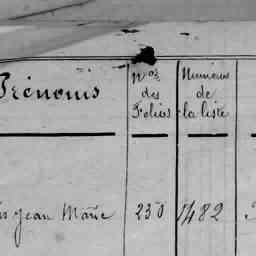 Prénoms
Nos des Folios
Numéros de la liste
Jean Marie 230 1482